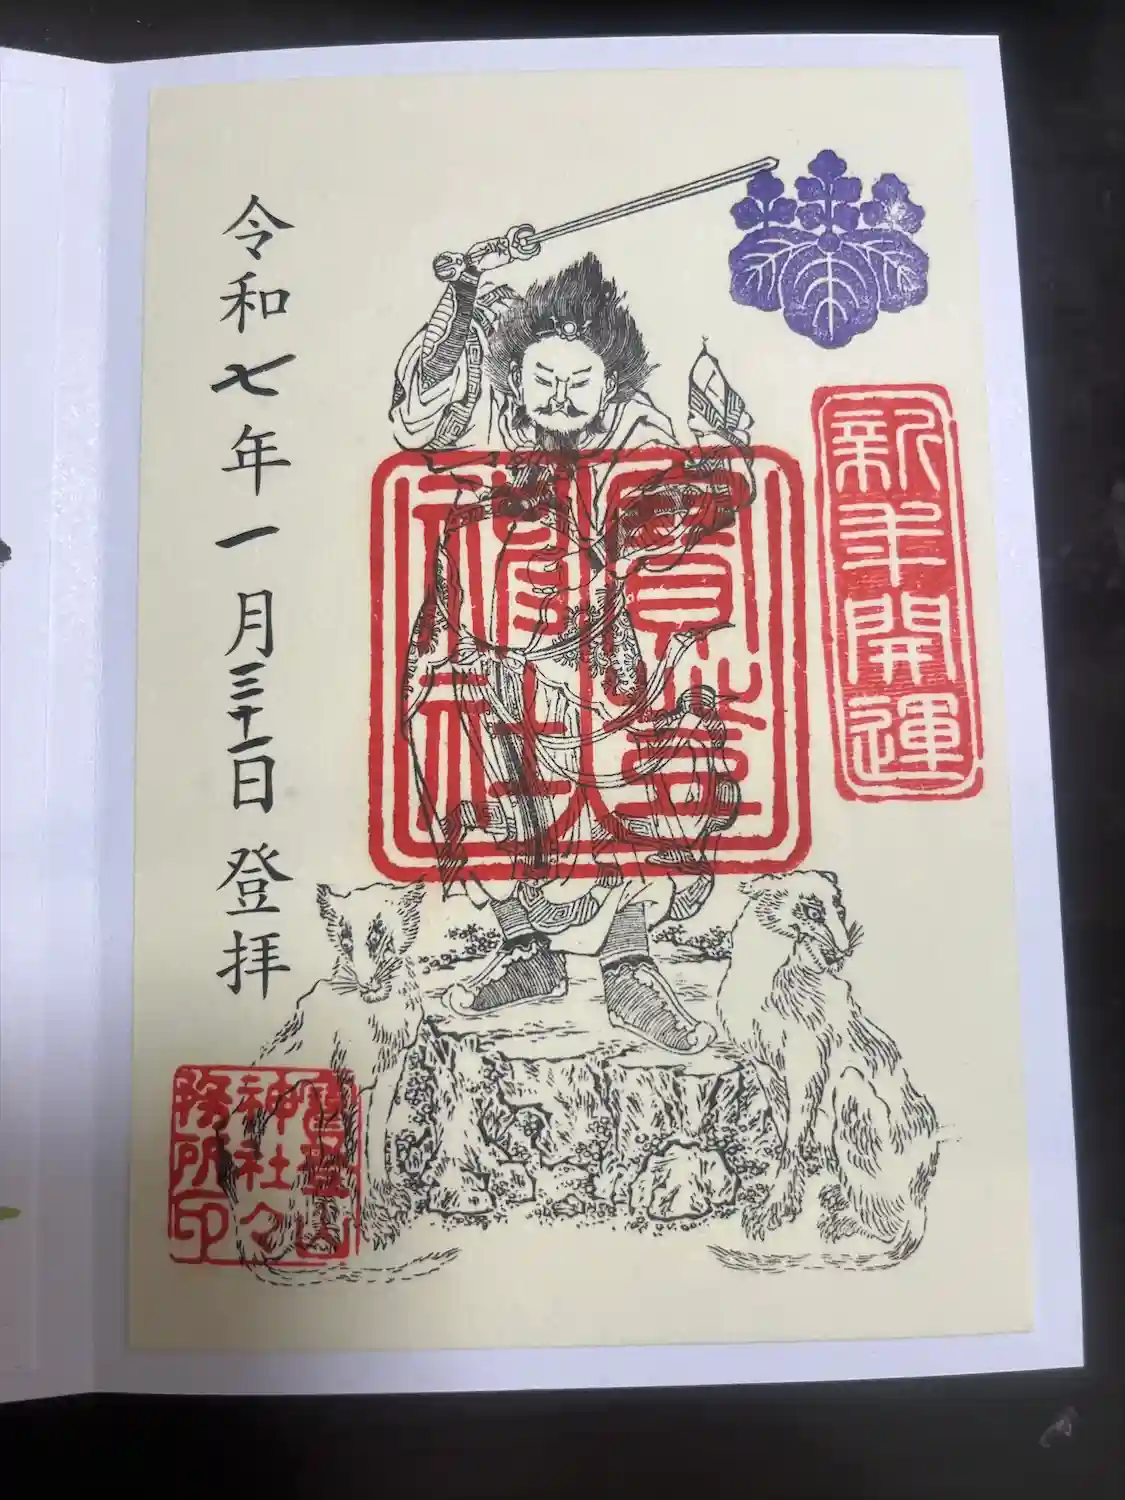 新年開運
寳登
神社
令和七年一月三十一日登拝
寳登山
神社々
務所印